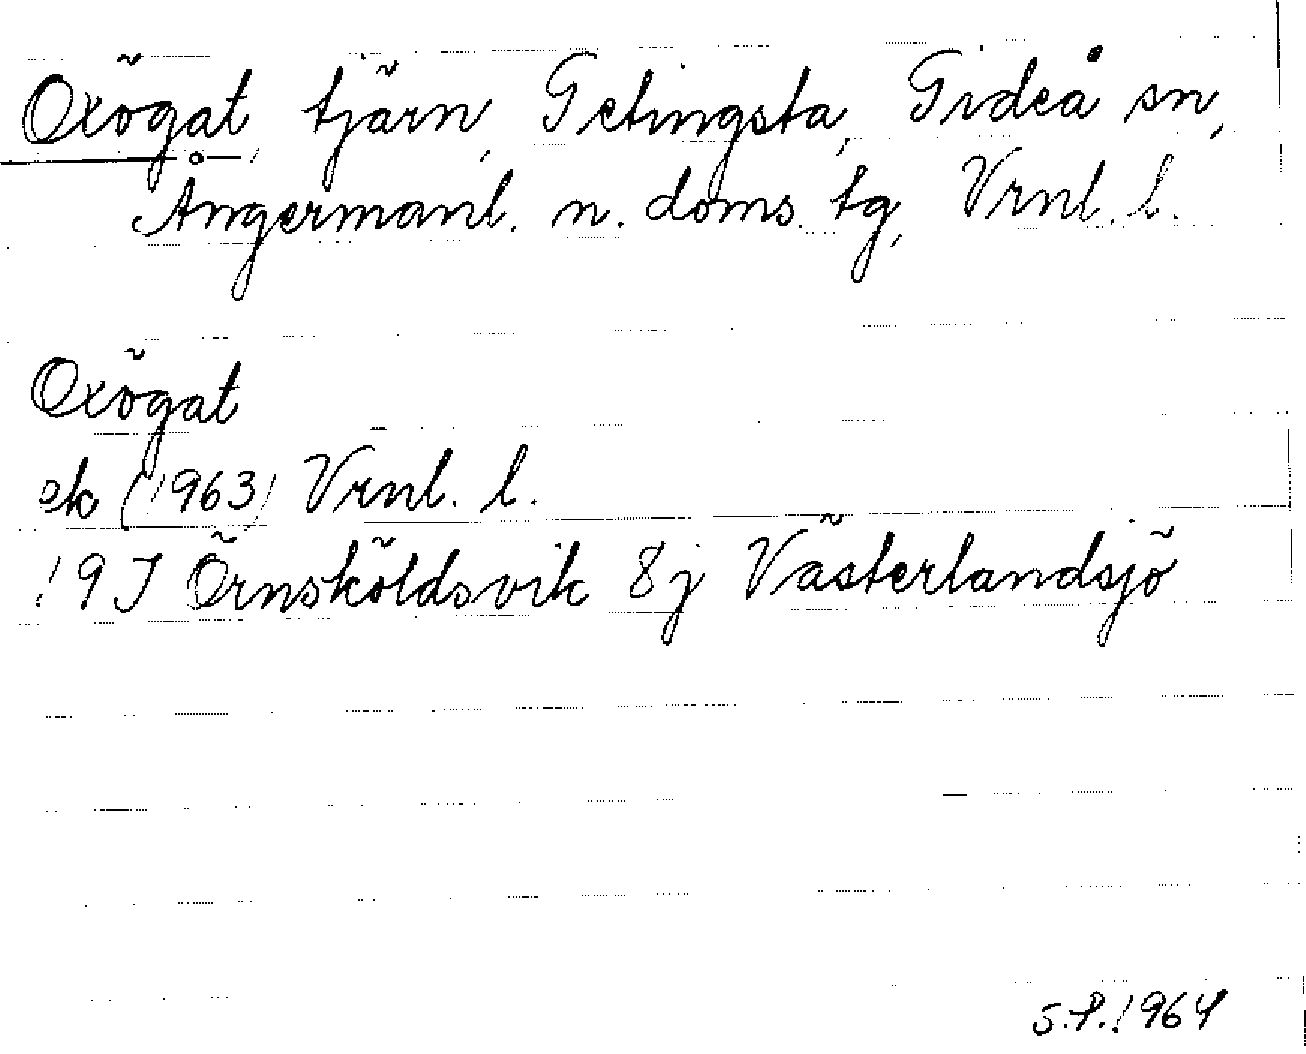 Oxögat, tjärn, Getingsta, Gideå sn,
Ångermanl. n. doms. tg, Vrnl. l.
Oxögat
ek (1963) Vrnl. l.
19J Örnsköldsvik 8j Västerlandsjö
S.P. 1964